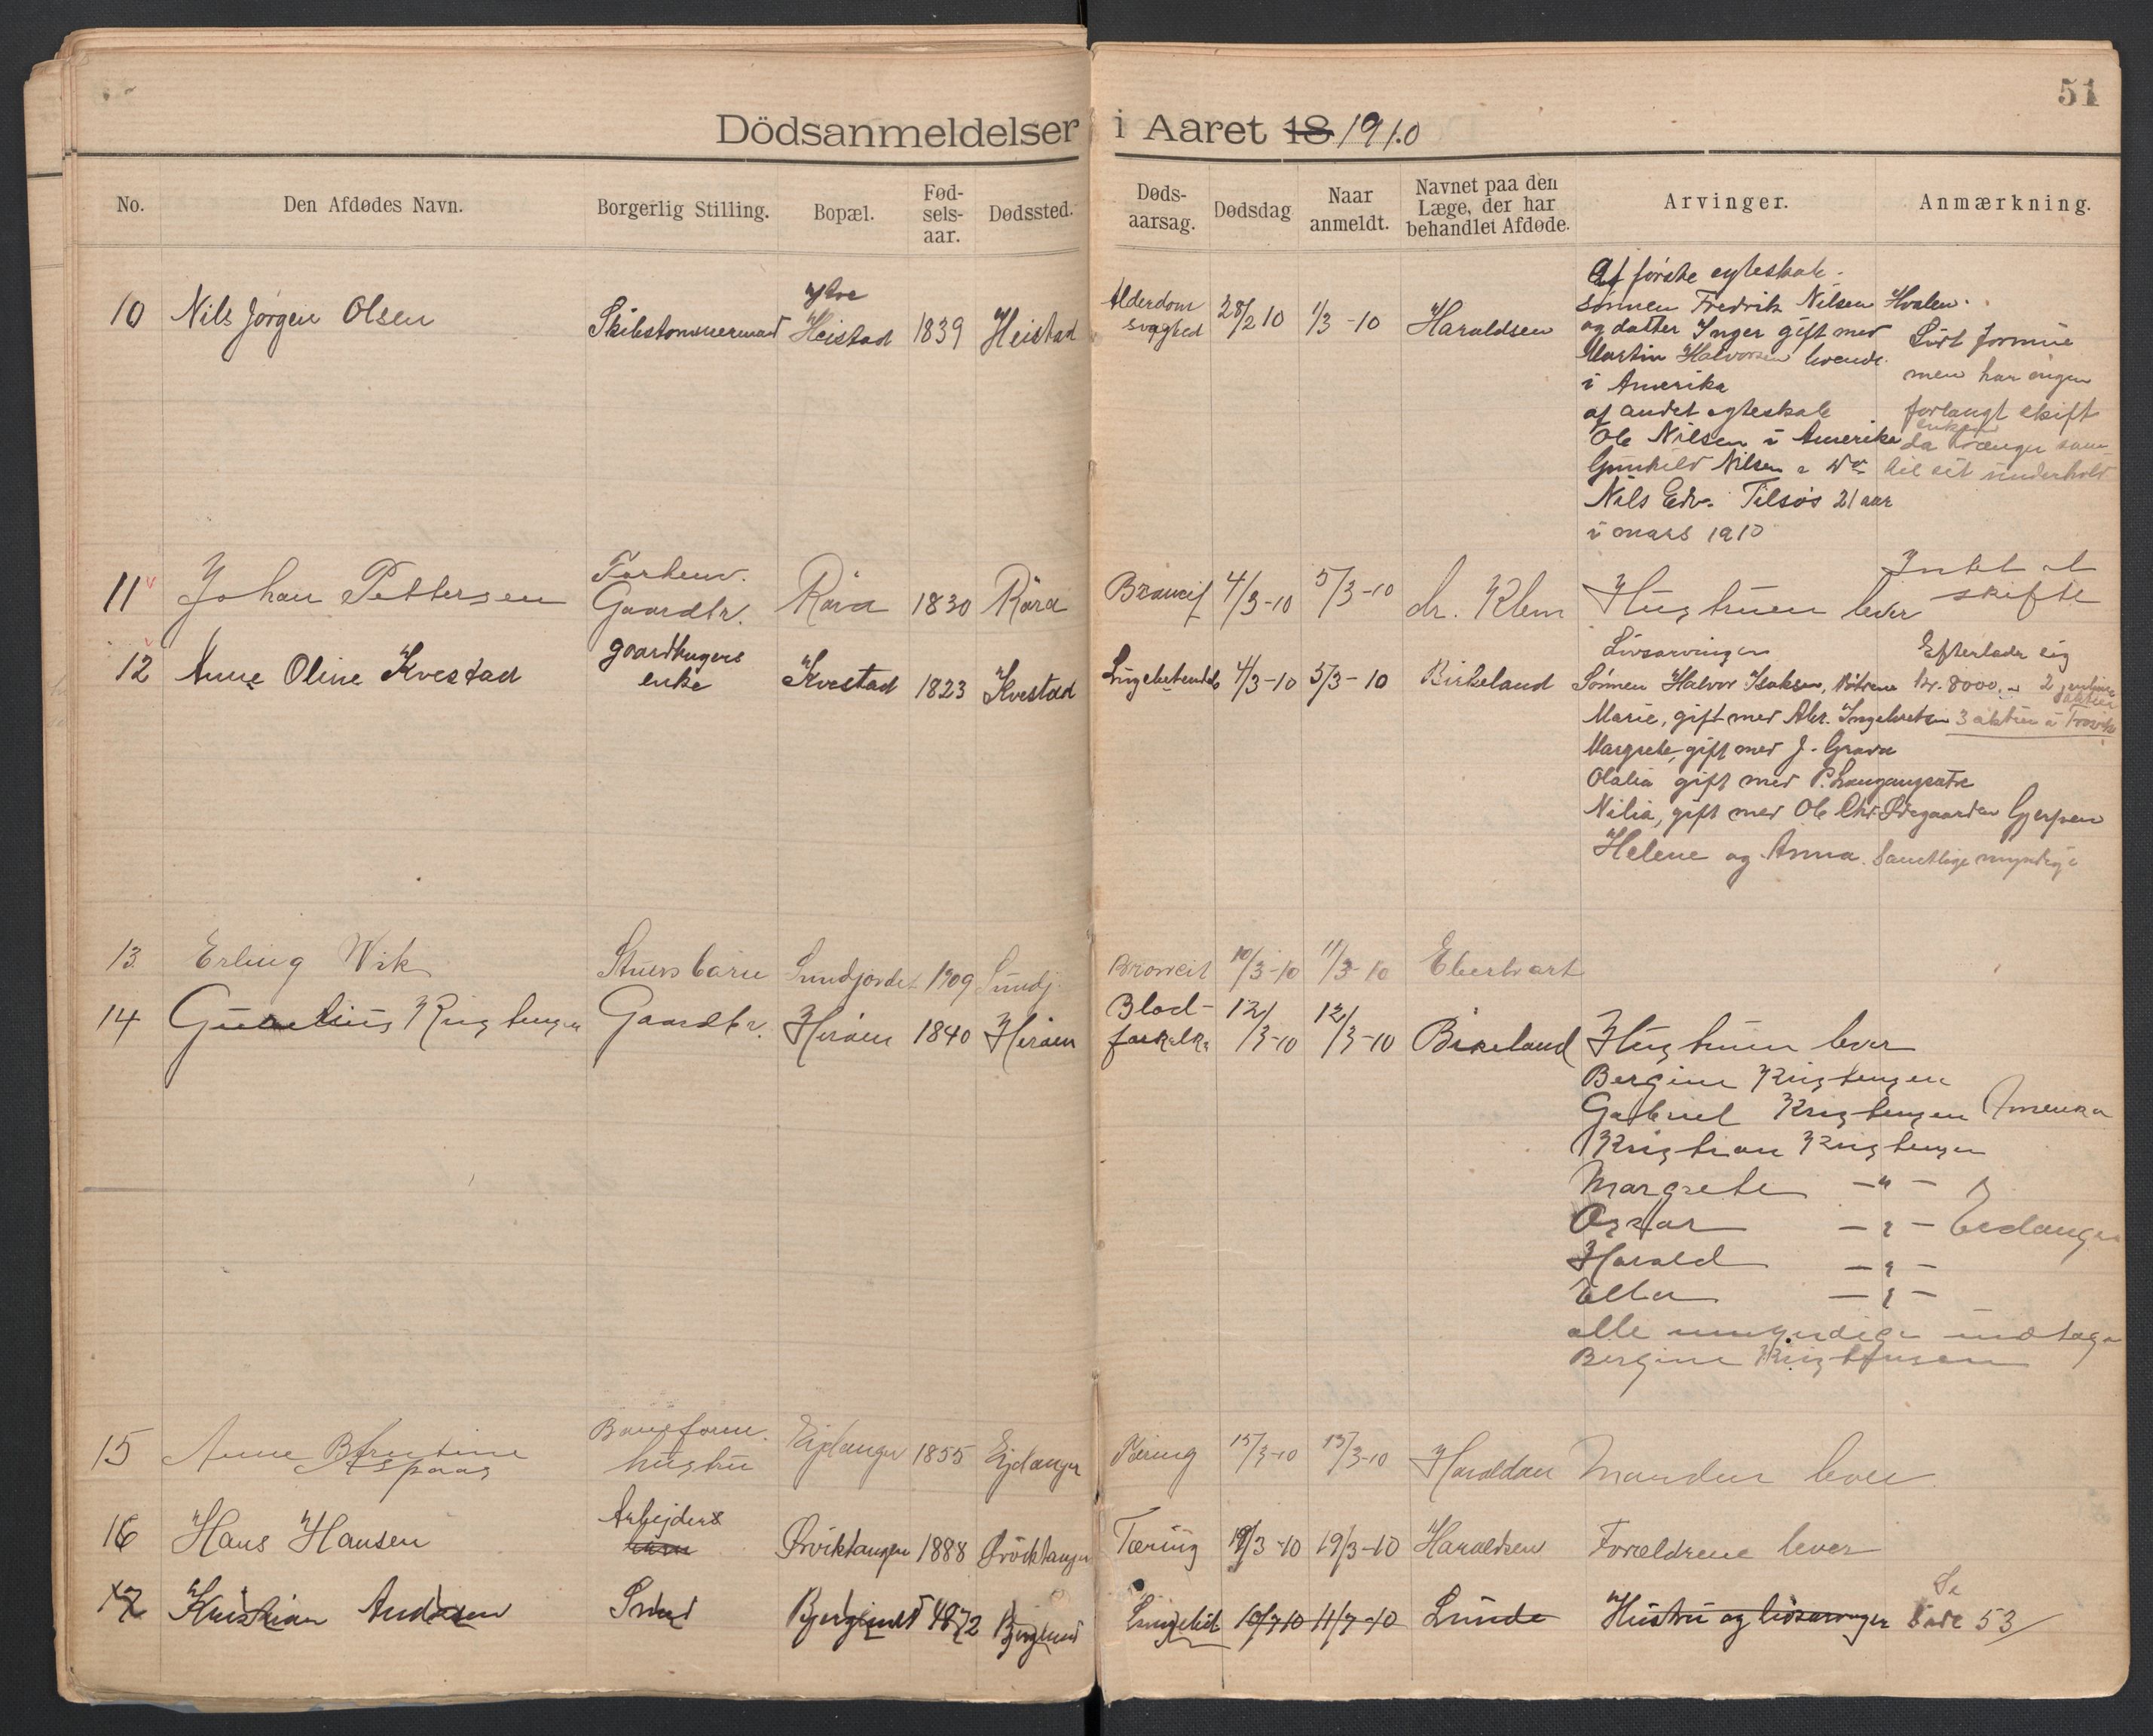 51
Dödsanmeldelser i Aaret 18 1910
No. Den Afdødes Navn. Borgerlig Stilling. Bopæl. Fød-sels-aar. Dødssted. Døds-aarsag. Dødsdag Naar anmeldt. Navnet paa den Læge, der har behandlet Afdøde. Arvinger. Anmærkning.
10 Nils Jørgen Olsen Skibstømmermand Heistad 1839 Heistad Alderdom svaghed 28/2 10 1/3-10 Haraldsen
Af første egteskab.
sønnen Fredrik Nilsen Hvalen.
og datter Inger gift med
Martin Halvorsen boende
i Amerika
af andet egteskab
Ole Nilsen i Amerika
Gunhild Nilsen
Nils Edv. Tilsøs 21 aar
i mars 1910
Lidt formue
men har ingen
forlangt skift
da enken trænger sam-
til sit underhold
11 Johan Pettersen Forhenv. Gaardbr. Røra 1830 Røra 4/3-10 5/3-10 dr. Klem Hustruen lever
Intet at
skifte
12 Anne Oline Kvestad gaardbrugers enke Kvestad 1823 Kvestad 4/3-10 5/3-10 Birkeland
Livsarvinger
Sønnen Halvor Isaksen, Døtrene
Marie, gift med Abr. Ingebretsen
Margrete, gift med J. Grava
Olalia gift med P. Langangsætre
Nilia, gift med Ole Chr. Ødegaarden Gjerpen
Helene og Anna. Samtlige myndige
Efterlader sig
kr. 8000. 2
3 aktier i
13 Erling Wik barn Sundjordet 1909 Sundj. 10/3-10 11/3-10
14 Kristensen Gaardbr. Herøen 1840 Herøen Blod- 12/3-10 12/3-10 Birkeland Hustruen lever
Bergine Kristensen
Gabriel Kristensen Amerika
Kristian Kristensen
Margrete — " —
Oskar — " — Eidanger
Harald — " —
Ella — " —
alle umyndige undtage
Bergine Kristensen
15 Anne hustru Ejdanger 1855 Ejdanger Tæring 15/3-10 15/3-10 Haraldsen Manden lever
16 Hans Hansen Arbejders barn Ørviktangen 1888 Ørviktangen Tæring 19/3-10 19/3-10 Haraldsen Forældrene lever
17 Kristian Andersen Smed Bjerglund 1872 Bjerglund 10/7 10 11/7-10 Lunde Hustru og livsarvinger
Se
Side 53